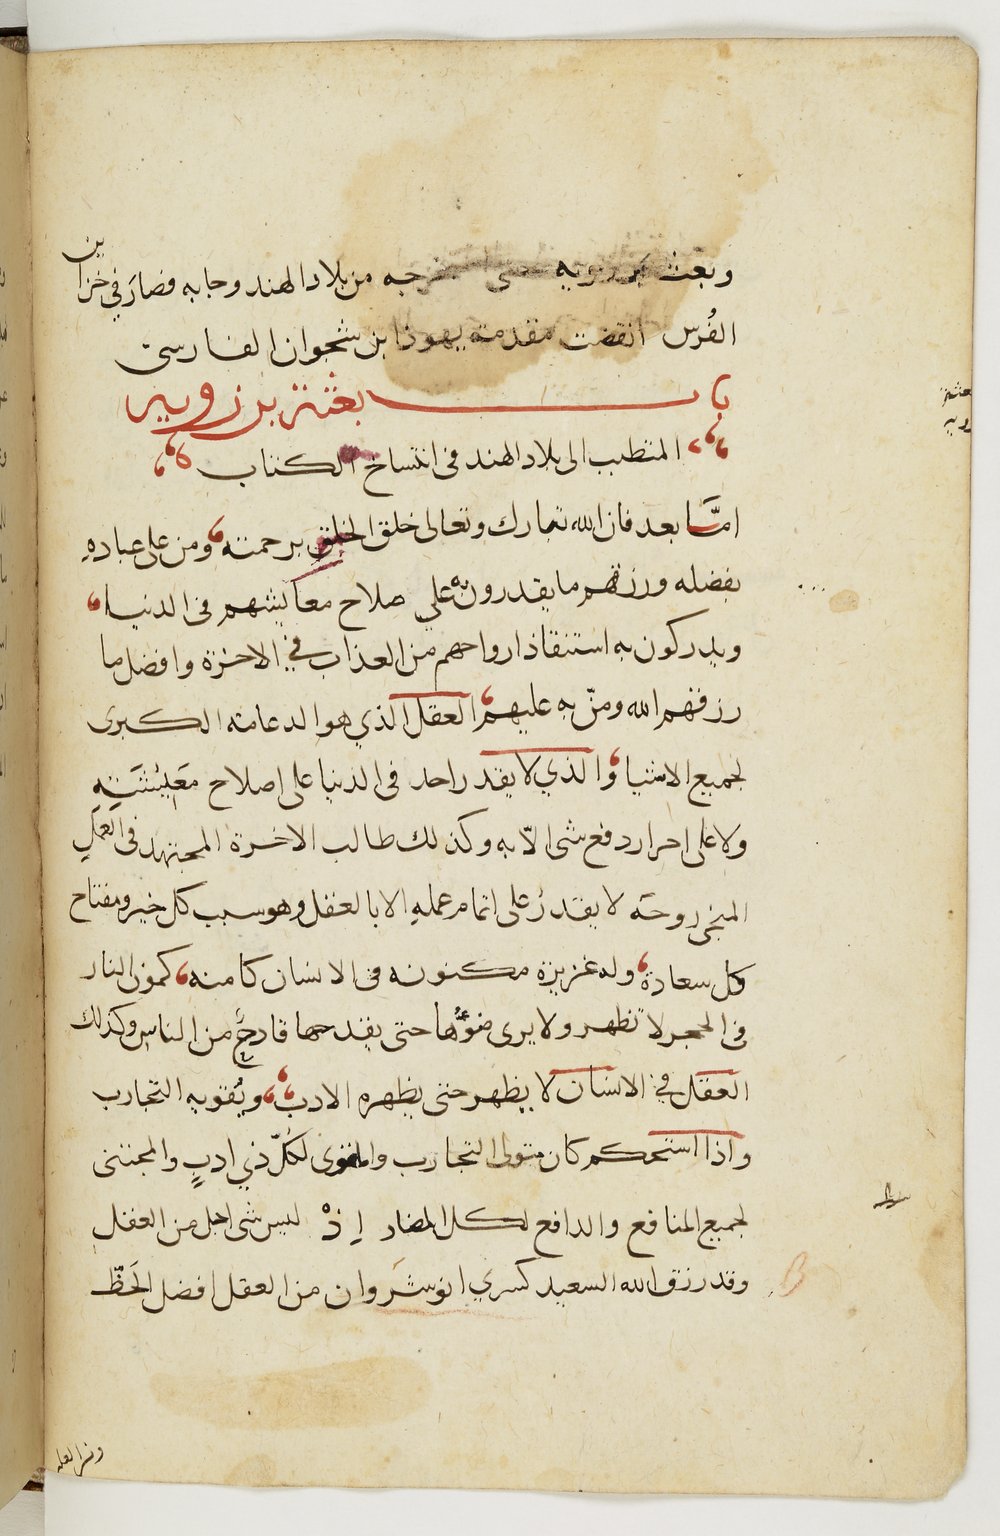 وبعث برزويه حتى استخرجه من بلاد الهند وجابه فصار في خزاين
الفُرس انقضت مقدمة يهوذا بن سحوان الفارسى
باب بعثة برزويه
المتطبب الى بلاد الهند فى انتساخ الكتاب
امَّا بعد فان الله تبارك وتعالى خلق الخلق برحمته ومن على عبادهِ
بفضله ورزقهم ما يقدرون به على صلاح معاكيشهم فى الدنيا
ويدركون به استنقاذ ارواحهم من العذاب في الاخرة وافضل ما
رزقهم الله ومنّ به عليهم العقل الذي هو الدعامه الكبرى
لجميع الاشيا والذي لا يقدر احد فى الدنيا على اصلاح مَعِيْشَتِهِ
ولا على احراز دفع شى الّا به وكذلك طالب الاخرة المجتهد فى العمل
المنجى روحَه لا يقدرُ على اتمام عملهِ الا بالعقل وهو سبب كل خير ومفتاح
كل سعادة وله غزيزة مكنونه فى الانسان كامنه ككمون النار
فى الحجر لا تظهر ولا يرى ضوءُها حتى يقدحها قادحٌ من الناس وكذلك
العقل في الانسان لا يظهر حتى يظهره الادب ويُقويه التجارب
واذا استحكم كان متولى التجارب والمقوى لكلّ ذي ادبٍ والمجتنى
لجميع المنافع والدافع لكل المضار إذْ ليس شى اجل من العقل
وقد رزق الله السعيد كسري انوشَروان من العقل افضل الحَظّ